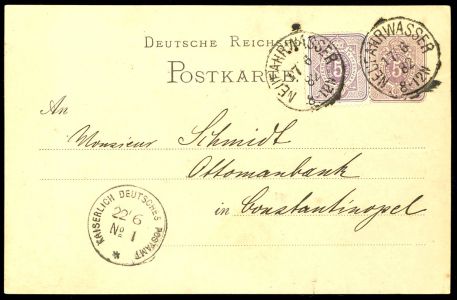 DEUTSCHE REICHSPOST
POSTKARTE
NEUFAHRWASSER
17 6
82
8-12N
5
NEUFAHRWASSER
17 6
82
8-12N
5
An
Monsieur Schmidt
Ottomanbank
in Constantinopel
KAISERLICH DEUTSCHES POSTAMT
22 6
No 1